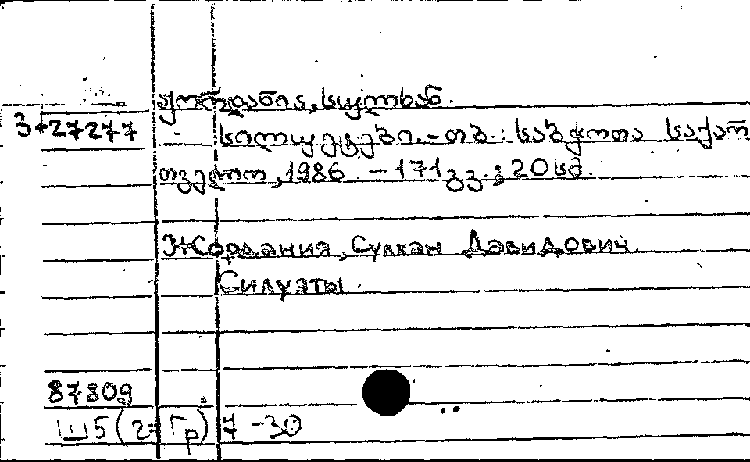 ჟორდანია, სულხან.
3-27277 სილუეტები.-თბ.: საბჭოთა საქარ
თველო, 1986. - 171გვ.; 20სმ.
Жордания, Сулхан Давидович
Силуэты.
87809
Ш5(2=Гр)7-30